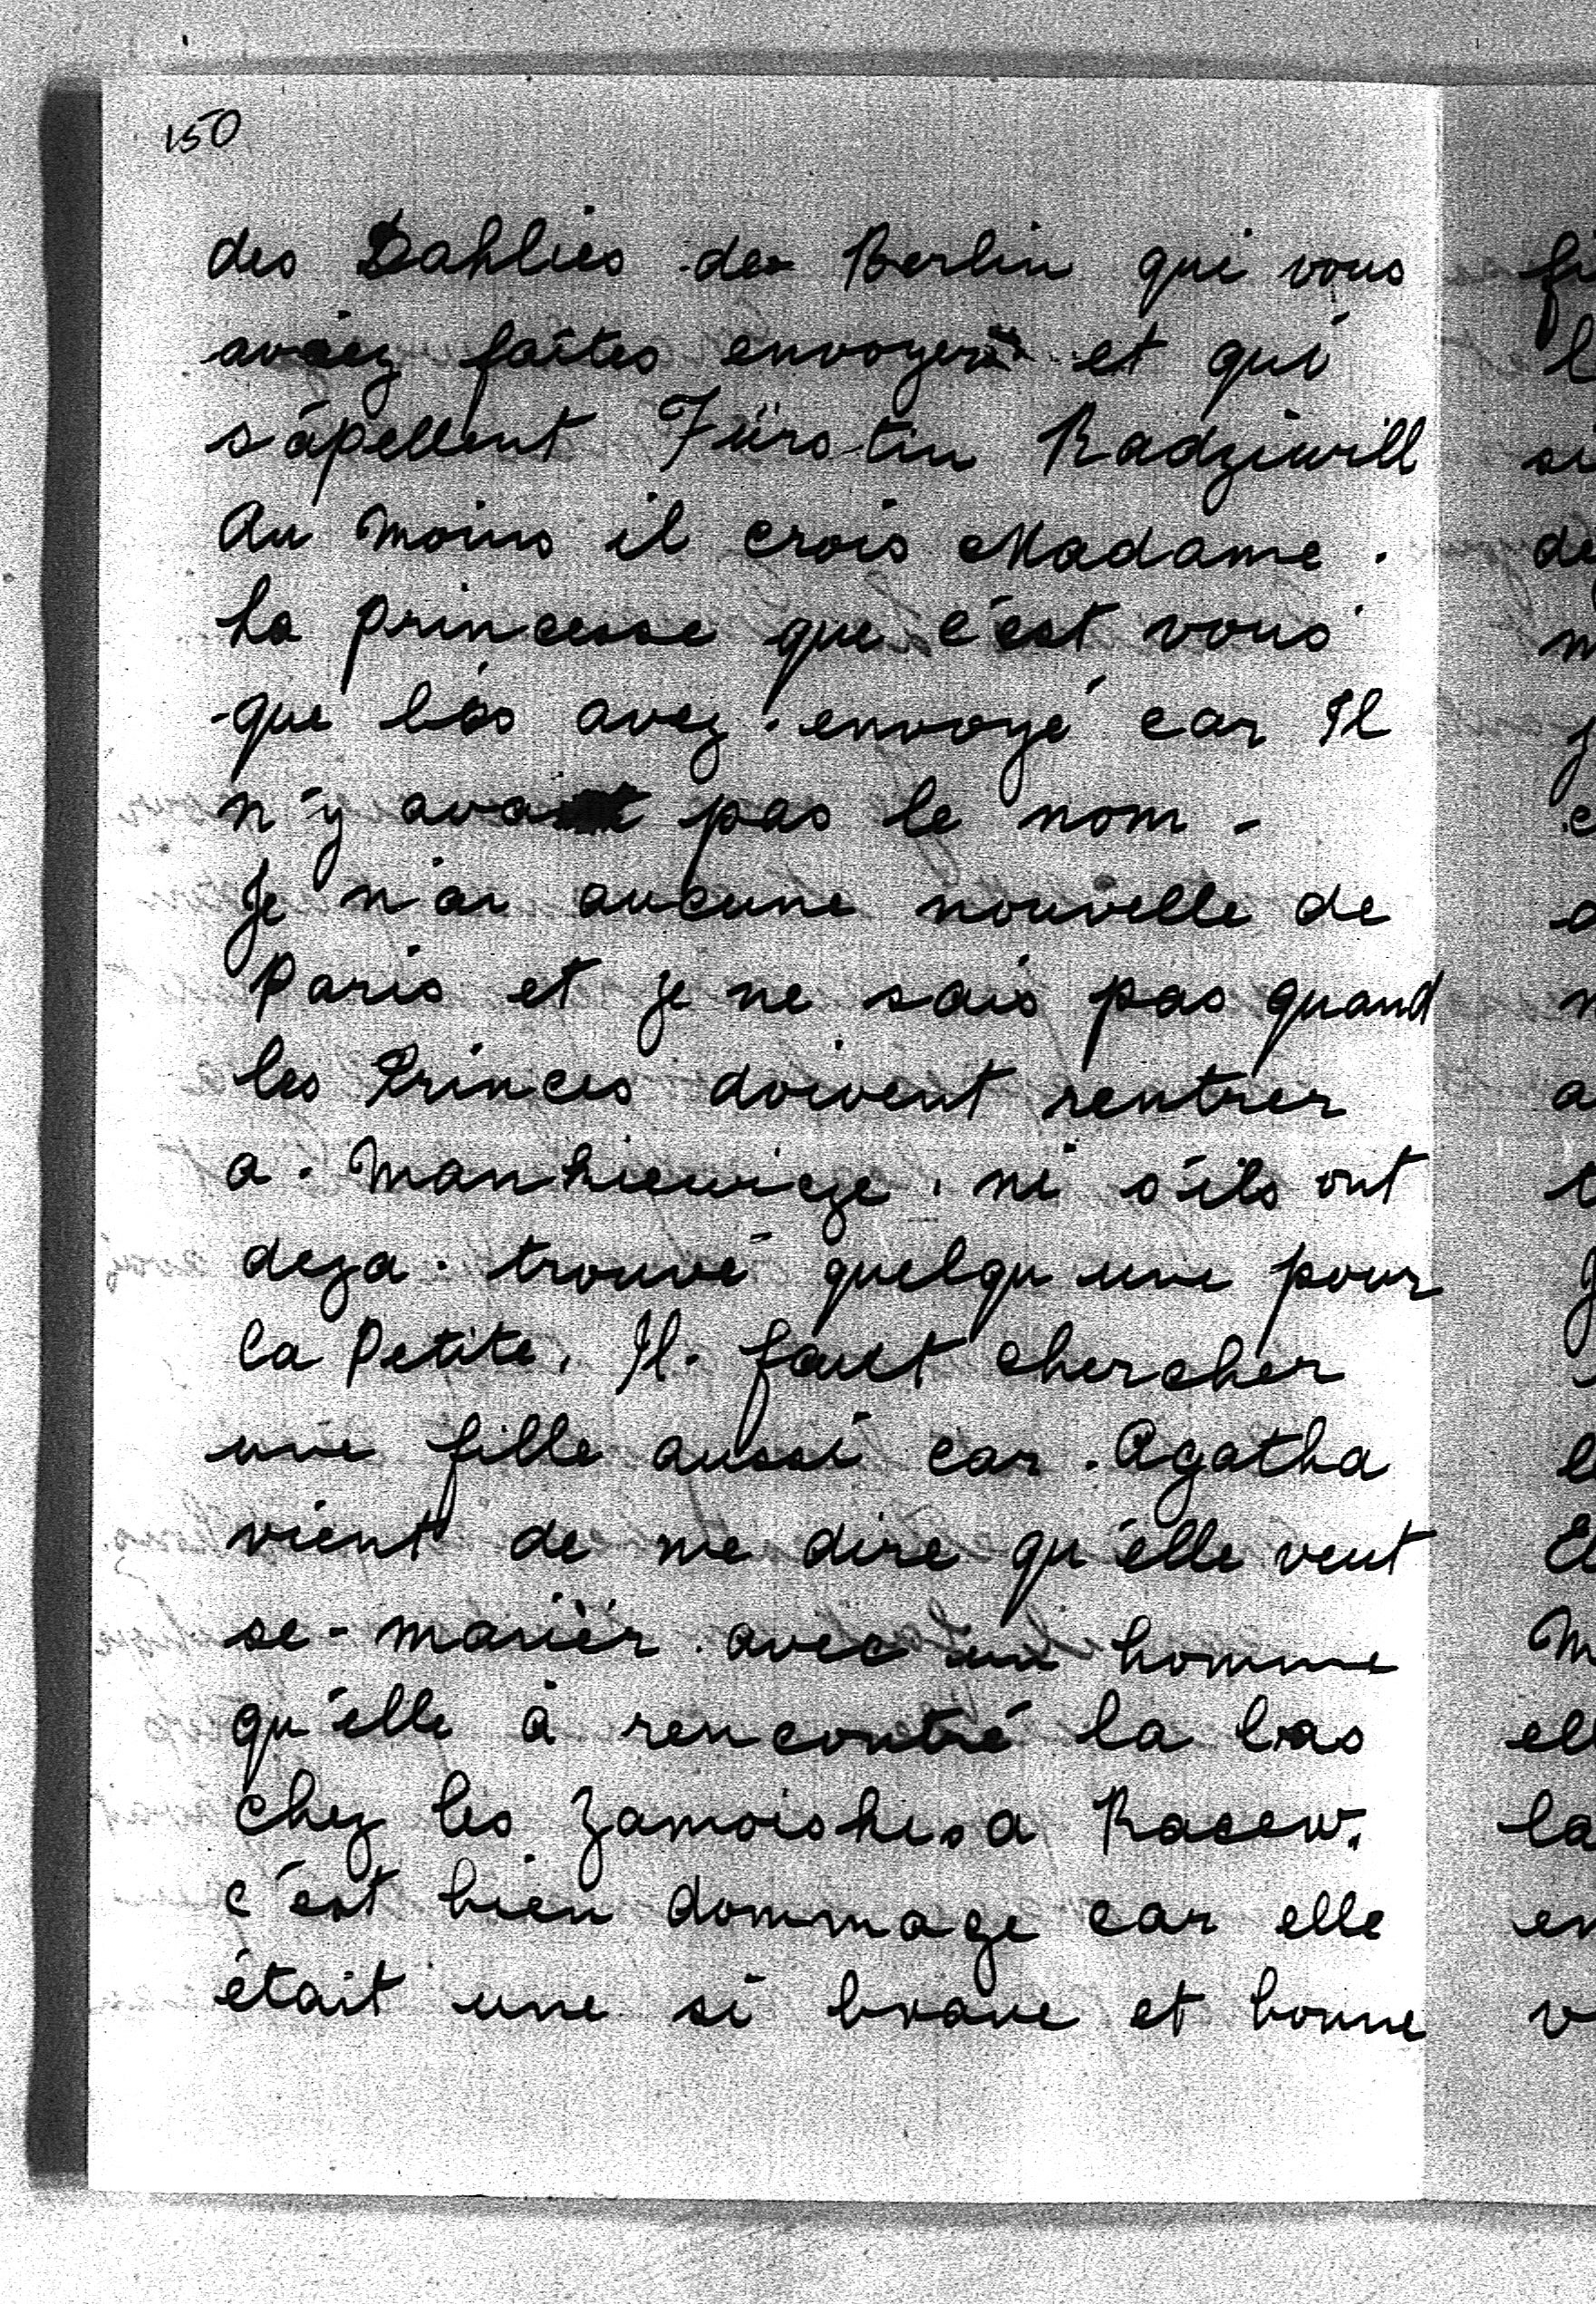 150
des Dahlies de Berlin qui vous
aviez faîtes envoyer et qui
s'apellent Fürstin Radziwill
Au moins il crois Madame.
La princesse que c'est vous
que les avez envoyé car Il
n'y avait pas le nom -
Je n'ai aucune nouvelle de
Paris et je ne sais pas quand
les Princes doivent rentrer
a. Mankiewicze, ni s'ils ont
deza. trouvé quelqu une pour
la Petite, Il. faut chercher
une fille aussi car. Agatha
vient de me dire qu'elle veut
se-mariér avec un homme
qu'elle à rencontré la bas
chez les Zamoiskis a Racew.
c'est bien dommage car elle
était une si brave et bonne